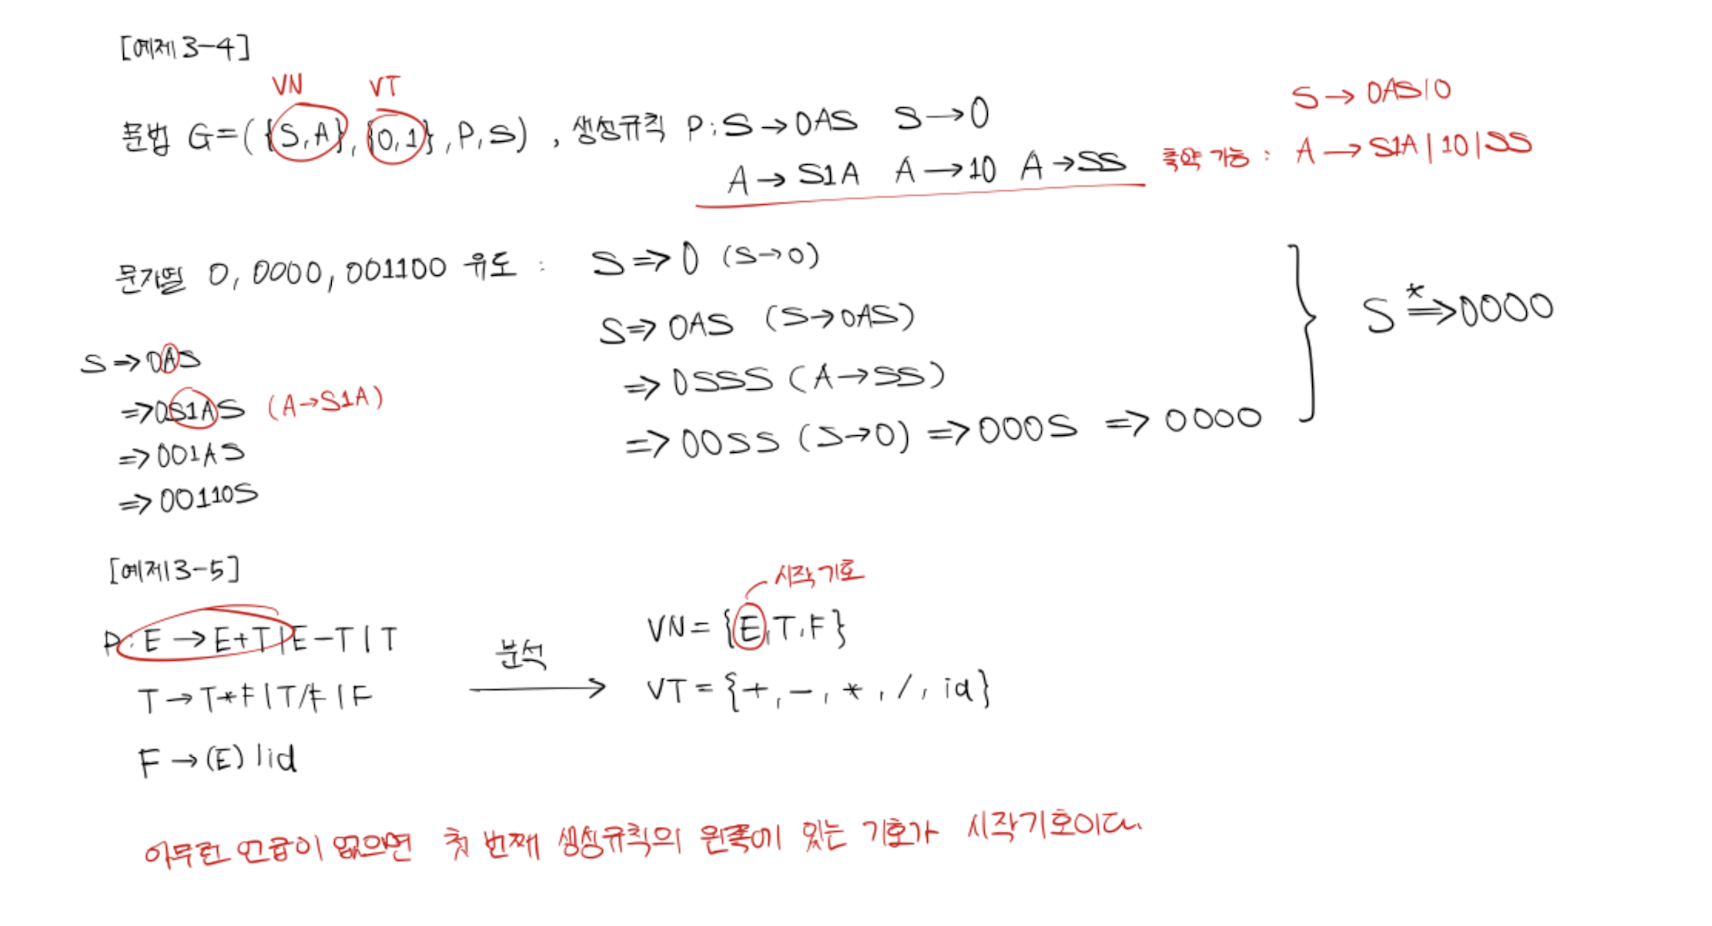 [예제 3-4]
VN VT
문법 G=({S,A},{0,1},P,S) , 생성규칙 P:S→0AS S→0
A→S1A A→10 A→SS
S→0AS|0
축약 가능 : A→S1A|10|SS
문자열 0, 0000, 001100 유도 : S⇒0 (S→0)
S⇒0AS (S→0AS)
⇒0SSS (A→SS)
⇒00SS (S→0) ⇒000S ⇒ 0000
S *⇒0000
S⇒0AS
⇒0S1AS (A→S1A)
⇒001AS
⇒00110S
[예제3-5]
P:E→E+T|E-T|T
T→T*F|T/F|F
F→(E)|id
분석
시작기호
VN={E,T,F}
VT={+,-,*,/,id}
아무런 언급이 없으면 첫 번째 생성규칙의 왼쪽에 있는 기호가 시작기호이다.